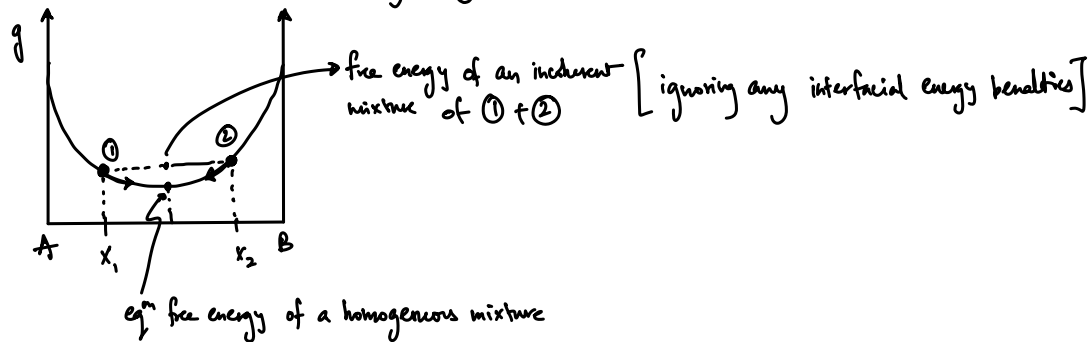 g
free energy of an incoherent
mixture of ① + ②
[ignoring any interfacial energy penalties]
①
②
A
x₁
x₂
B
eqᵐ free energy of a homogenous mixture